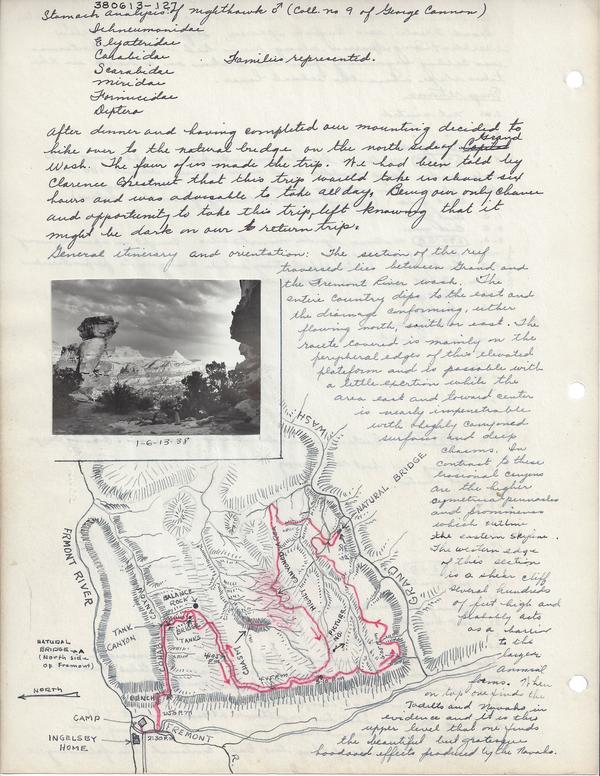 380613-127
Stomach Analysis of nighthawk ♂ (Coll. no 9 of George Cannon)
Ichneumonidae
Elyateridae
Carabidae . Families represented.
Scarabidae
Miridae
Formicidae
Diptera
After dinner and having completed our mounting decided to
hike over to the natural bridge on the north side of Capitol Grand
Wash. The four of us made the trip. We had been told by
Clarence Chestnut that this trip would take us about six
hours and was advisable to take all day. Being our only chance
and opportunity to take this trip, left knowing that it
might be dark on our return trip.
General itinerary and orientation: The section of the reef
traversed lies between Grand and
the Fremont River wash. The
entire country dips to the east and
the drainage conforming, either
flowing north, south or east. The
route covered is mainly on the
peripheral edges of this elevated
platform and is passable with
a little exertion while the
area east and toward center
is nearly impenetrable
with highly canyoned
surfaces and deep
chasms. In
contrast to these
erosional canyons
are the higher
symmetrical pinnacles
and prominences
which outline
the eastern skyline.
The western edge
of this section
is a shear cliff
several hundreds
of feet high and
probably acts
as a barrier
to the
larger
animal
forms. When
on top one finds the
Todilto and Navaho in
evidence and it is this
upper level that one finds
the beautiful but grotesque
hoodooed effects produced by the Navaho.
1-6-13-38
WASH
NATURAL BRIDGE
GRAND
FRMONT RIVER
CANYON
TANK
CANYON
BALANCE
ROCK
TANKS
CHASM
HIGHLY CANYONED
PICTURE
NO.
NATURAL
BRIDGE→A
(North side
of Fremont)
NORTH
BENCH
CAMP
INGELSBY
HOME
2:30 P.M
FREMONT
R.